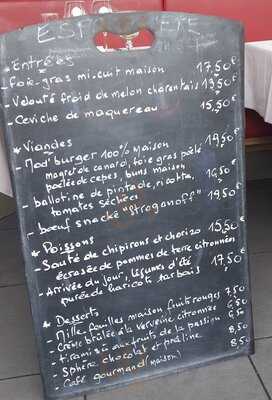 * Entrées
- foie-gras mi-cuit maison 17,50 €
- Velouté froid de melon charentais 13,50
- Ceviche de maquereau 15,50 €
* Viandes
- Mod'burger 100% maison 19,50 €
magret de canard, foie gras poêlé
poêlée de cèpes, buns maison
- ballotine de pintade, ricotta, 16,50 €
tomates séchées
- bœuf snacké "stroganoff" 19,50 €
* Poissons
- Sauté de chipirons et chorizo 15,50 €
écrasée de pommes de terre citronnées
- Arrivée du jour, légumes d'été 17,50 €
purée de haricots tarbais
* Desserts
- Mille-feuilles maison fruits rouges 7,50
- Crème brûlée à la verveine citronnée 6,50
- tiramisù aux fruits de la passion 6,50
- Sphère chocolat et praliné 8,50
- Café gourmand (maison) 8,50